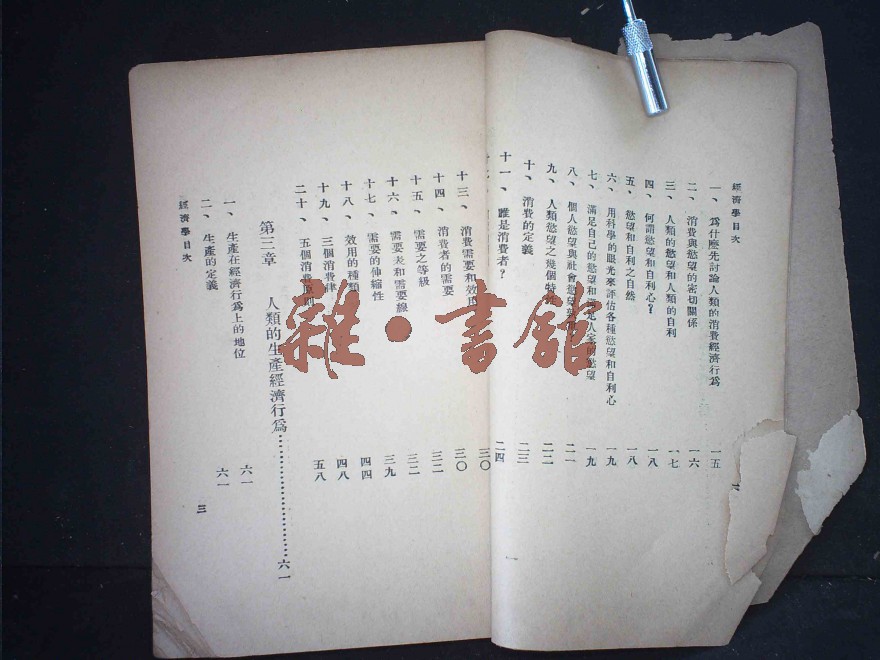 經濟學目次
一、爲什麽先討論人類的消費經濟行爲 一五
二、消費與慾望的密切關係 一六
三、人類的慾望和人類的自利 一七
四、何謂慾望和自利心？ 一八
五、慾望和自利之自然 一八
六、用科學的眼光來評估各種慾望和自利心 一九
七、滿足自己的慾望和 人家的慾望 一九
八、個人慾望與社會慾望 二一
九、人類慾望之幾個特性 二二
十、消費的定義 二三
十一、誰是消費者？ 二四
三〇
十三、消費需要和效用 三〇
十四、消費者的需要 三二
十五、需要之等級 三二
十六、需要表和需要線 三九
十七、需要的伸縮性 四四
十八、效用的種類 四八
十九、三個消費律
二十、五個消費原則 五八
第三章 人類的生產經濟行爲……………………六一
一、生產在經濟行爲上的地位 六一
二、生產的定義 六一
經濟學目次 三
雜·書館